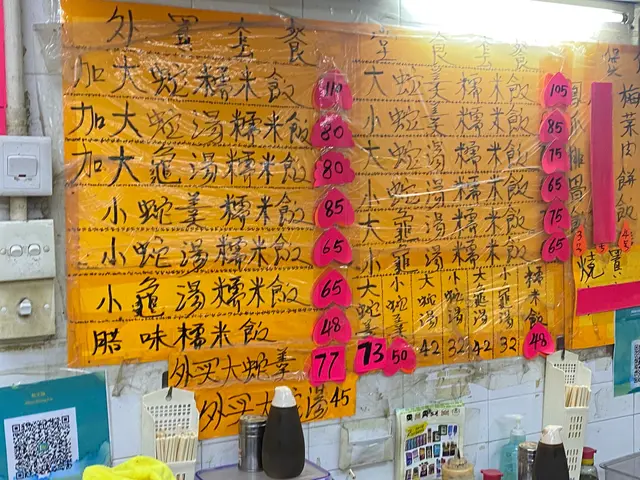 外賣套餐
加大蛇糯米飯 110
加大蛇湯糯米飯 80
加大龜湯糯米飯 80
小蛇羹糯米飯 85
小蛇湯糯米飯 65
小龜湯糯米飯 65
腊味糯米飯 48
外买大蛇羹 77
外买大蛇湯 45
堂食套餐
大蛇羹糯米飯 105
小蛇羹糯米飯 85
大蛇湯糯米飯 75
小蛇湯糯米飯 65
大龜湯糯米飯 75
小龜湯糯米飯 65
大蛇羹 73
小蛇羹 50
大蛇湯 42
小蛇湯 32
大龜湯 42
小龜湯 32
糯米飯 48
鳳爪排骨
梅菜肉餅飯
燒賣